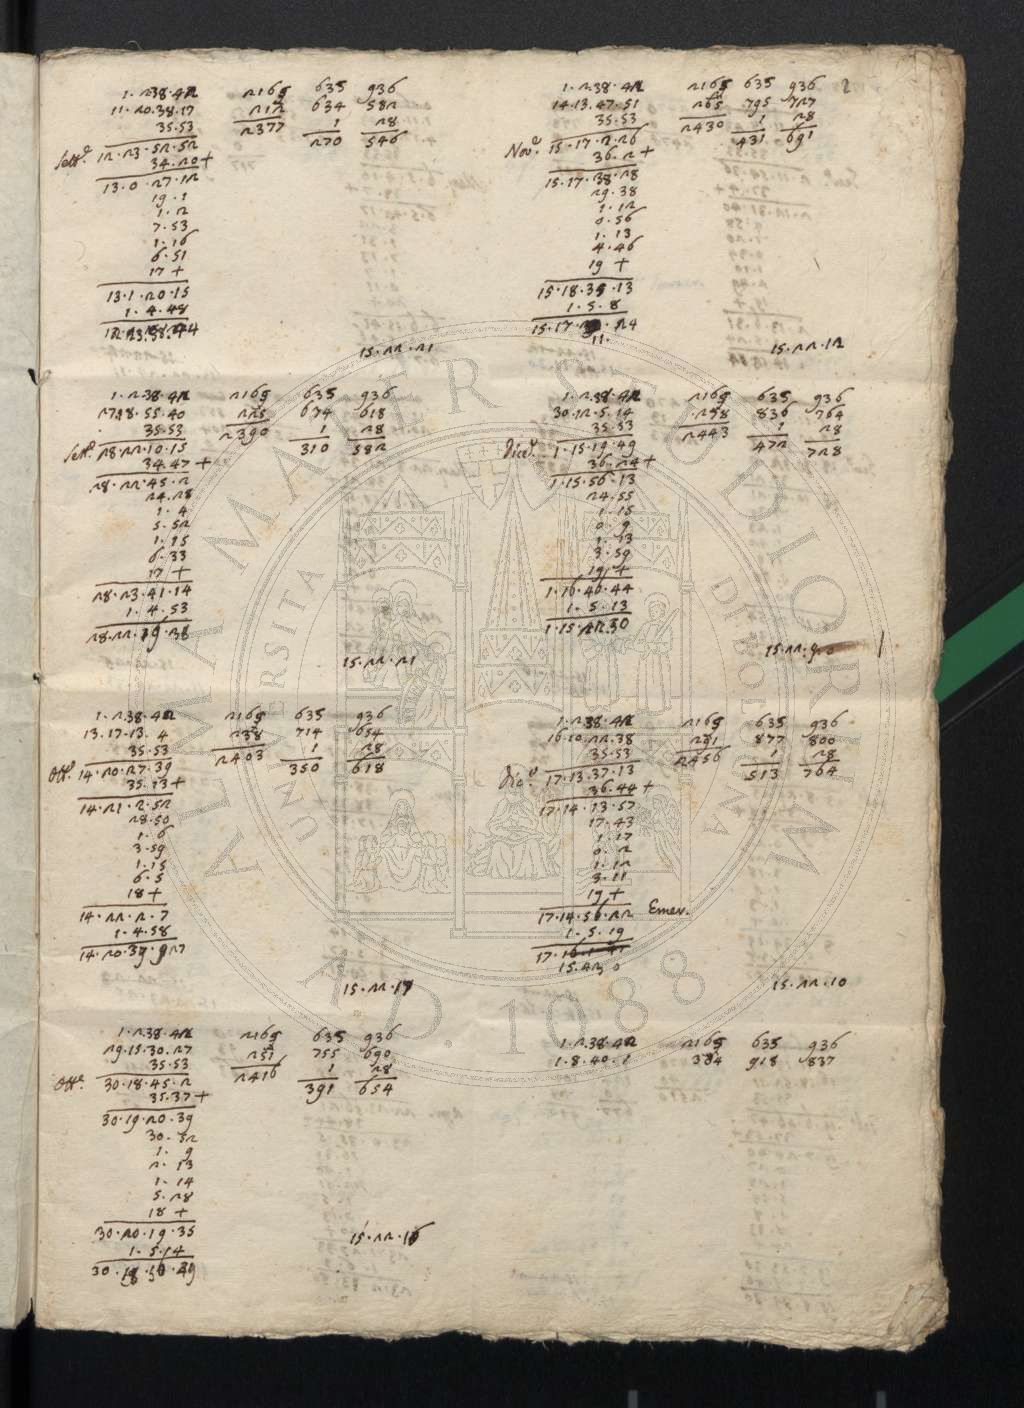 2
1.2.38.42 2165 635 936
11.20.38.17 212 634 582
35.53 2377 1 28
Sett.e 12.23.52.52 270 546
34.20+
13.0.27.12
19.1
1.2
7.53
1.16
6.51
17+
13.1.20.15
1.4.48
15.22.21
1.2.38.42 2165 635 936
27.18.55.40 225 674 618
35.53 2390 1 28
Sett.e 28.22.10.15 310 582
34.47+
28.22.45.2
24.28
1.4
5.52
1.15
6.33
17+
28.23.41.14
1.4.53
15.22.21
1.2.38.42 2165 635 936
13.17.13.4 238 714 654
35.53 2403 1 28
Ott.e 14.20.27.39 350 618
35.13+
14.21.2.52
28.50
1.6
3.59
1.15
6.5
18+
14.22.2.7
1.4.58
14.20.39.27
15.22.17
1.2.38.42 2165 635 936
29.15.30.27 251 755 690
35.53 2416 1 28
Ott.e 30.18.45.2 391 654
35.37+
30.19.20.39
30.52
1.9
2.13
1.14
5.28
18+
30.20.19.35
1.5.14
15.22.16
1.2.38.42 2165 635 936
14.13.47.51 265 795 727
35.53 2430 1 28
Nov.e 15.17.2.26 431 691
36.2+
15.17.38.28
29.38
1.12
0.56
1.13
4.46
19+
15.18.35.13
1.5.8
11.
15.22.12
1.2.38.42 2165 635 936
30.12.5.14 278 836 764
35.53 2443 1 28
Dice.e 1.15.19.49 472 728
36.24+
1.15.56.13
24.55
1.15
0.9
1.13
3.59
19+
1.16.46.44
1.5.13
1.15.22.30
1.2.38.42 2165 635 936
16.10.22.38 291 877 800
35.53 2456 1 28
Dic.e 17.13.37.13 513 764
36.44+
17.14.13.57
17.43
1.17
0.2
1.12
3.11
19+
17.14.56.22 Emer.
1.5.19
15.22.10
1.2.38.42 2165 635 936
1.8.40.1 304 918 837
ALMA MATER STUDIORUM
UNIVERSITA DI BOLOGNA
A.D. 1088